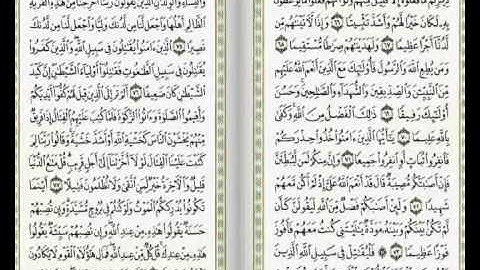 مِن دِيَٰرِكُم مَّا فَعَلُوهُ إِلَّا قَلِيلٌ مِّنْهُمْ وَلَوْ أَنَّهُمْ فَعَلُوا۟ مَا يُوعَظُونَ
بِهِۦ لَكَانَ خَيْرًا لَّهُمْ وَأَشَدَّ تَثْبِيتًا ٦٦ وَإِذًا لَّءَاتَيْنَٰهُم مِّن
لَّدُنَّآ أَجْرًا عَظِيمًا ٦٧ وَلَهَدَيْنَٰهُمْ صِرَٰطًا مُّسْتَقِيمًا ٦٨
وَمَن يُطِعِ ٱللَّهَ وَٱلرَّسُولَ فَأُو۟لَٰٓئِكَ مَعَ ٱلَّذِينَ أَنْعَمَ ٱللَّهُ عَلَيْهِم
مِّنَ ٱلنَّبِيِّۦنَ وَٱلصِّدِّيقِينَ وَٱلشُّهَدَآءِ وَٱلصَّٰلِحِينَ وَحَسُنَ
أُو۟لَٰٓئِكَ رَفِيقًا ٦٩ ذَٰلِكَ ٱلْفَضْلُ مِنَ ٱللَّهِ وَكَفَىٰ
بِٱللَّهِ عَلِيمًا ٧٠ يَٰٓأَيُّهَا ٱلَّذِينَ ءَامَنُوا۟ خُذُوا۟ حِذْرَكُمْ
فَٱنفِرُوا۟ ثُبَاتٍ أَوِ ٱنفِرُوا۟ جَمِيعًا ٧١ وَإِنَّ مِنكُمْ لَمَن لَّيُبَطِّئَنَّ
فَإِنْ أَصَٰبَتْكُم مُّصِيبَةٌ قَالَ قَدْ أَنْعَمَ ٱللَّهُ عَلَىَّ إِذْ لَمْ أَكُن مَّعَهُمْ
شَهِيدًا ٧٢ وَلَئِنْ أَصَٰبَكُمْ فَضْلٌ مِّنَ ٱللَّهِ لَيَقُولَنَّ كَأَن
لَّمْ تَكُنۢ بَيْنَكُمْ وَبَيْنَهُۥ مَوَدَّةٌ يَٰلَيْتَنِى كُنتُ مَعَهُمْ فَأَفُوزَ
فَوْزًا عَظِيمًا ٧٣ فَلْيُقَٰتِلْ فِى سَبِيلِ ٱللَّهِ ٱلَّذِينَ
وَٱلنِّسَآءِ وَٱلْوِلْدَٰنِ ٱلَّذِينَ يَقُولُونَ رَبَّنَآ أَخْرِجْنَا مِنْ هَٰذِهِ ٱلْقَرْيَةِ
ٱلظَّالِمِ أَهْلُهَا وَٱجْعَل لَّنَا مِن لَّدُنكَ وَلِيًّا وَٱجْعَل لَّنَا مِن لَّدُنكَ
نَصِيرًا ٧٥ ٱلَّذِينَ ءَامَنُوا۟ يُقَٰتِلُونَ فِى سَبِيلِ ٱللَّهِ وَٱلَّذِينَ كَفَرُوا۟
يُقَٰتِلُونَ فِى سَبِيلِ ٱلطَّٰغُوتِ فَقَٰتِلُوٓا۟ أَوْلِيَآءَ ٱلشَّيْطَٰنِ إِنَّ كَيْدَ
ٱلشَّيْطَٰنِ كَانَ ضَعِيفًا ٧٦ أَلَمْ تَرَ إِلَى ٱلَّذِينَ قِيلَ لَهُمْ كُفُّوٓا۟ أَيْدِيَكُمْ
وَأَقِيمُوا۟ ٱلصَّلَوٰةَ وَءَاتُوا۟ ٱلزَّكَوٰةَ فَلَمَّا كُتِبَ عَلَيْهِمُ ٱلْقِتَالُ إِذَا فَرِيقٌ
مِّنْهُمْ يَخْشَوْنَ ٱلنَّاسَ كَخَشْيَةِ ٱللَّهِ أَوْ أَشَدَّ خَشْيَةً وَقَالُوا۟ رَبَّنَا لِمَ
كَتَبْتَ عَلَيْنَا ٱلْقِتَالَ لَوْلَآ أَخَّرْتَنَآ إِلَىٰٓ أَجَلٍ قَرِيبٍ قُلْ مَتَٰعُ ٱلدُّنْيَا
قَلِيلٌ وَٱلْءَاخِرَةُ خَيْرٌ لِّمَنِ ٱتَّقَىٰ وَلَا تُظْلَمُونَ فَتِيلًا ٧٧ أَيْنَمَا
تَكُونُوا۟ يُدْرِككُّمُ ٱلْمَوْتُ وَلَوْ كُنتُمْ فِى بُرُوجٍ مُّشَيَّدَةٍ وَإِن تُصِبْهُمْ
حَسَنَةٌ يَقُولُوا۟ هَٰذِهِۦ مِنْ عِندِ ٱللَّهِ وَإِن تُصِبْهُمْ سَيِّئَةٌ يَقُولُوا۟
هَٰذِهِۦ مِنْ عِندِكَ قُلْ كُلٌّ مِّنْ عِندِ ٱللَّهِ فَمَالِ هَٰٓؤُلَآءِ ٱلْقَوْمِ لَا يَكَادُونَ